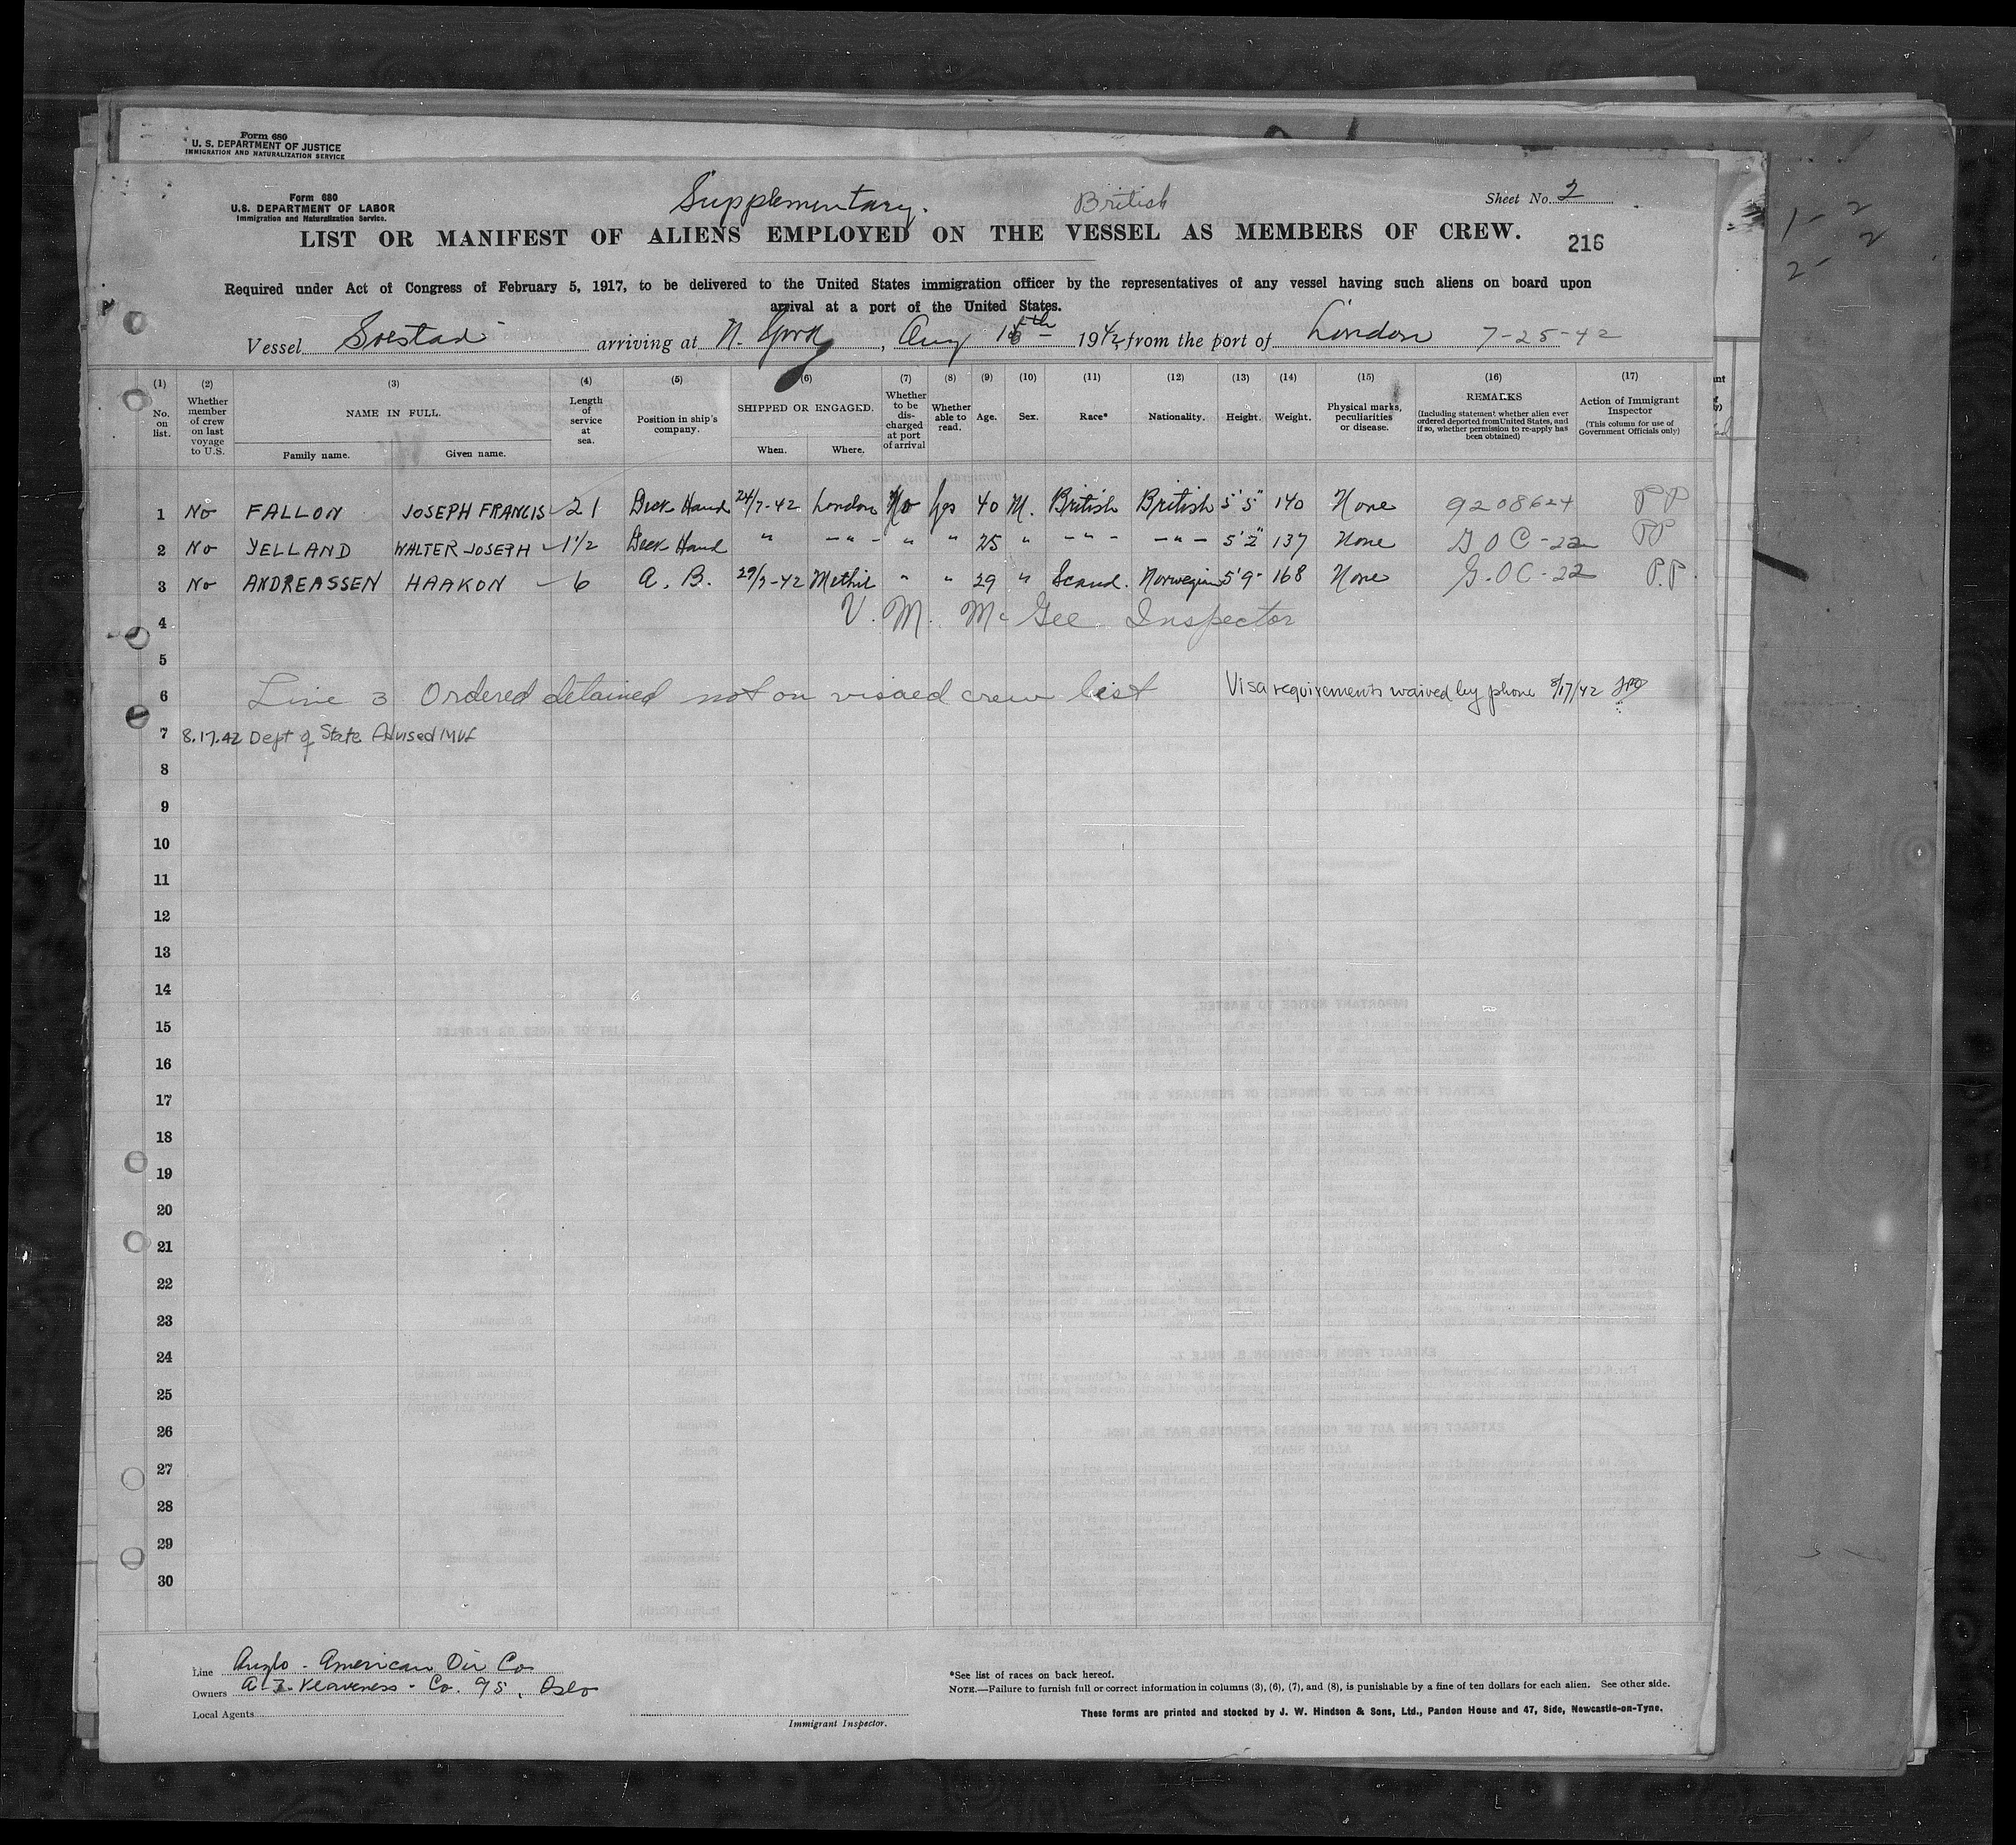 Form 680
U. S. DEPARTMENT OF JUSTICE
IMMIGRATION AND NATURALIZATION SERVICE
Form 680
U.S. DEPARTMENT OF LABOR
Immigration and Naturalization Service.
Supplementary. British
Sheet No. 2
LIST OR MANIFEST OF ALIENS EMPLOYED ON THE VESSEL AS MEMBERS OF CREW.
216
Required under Act of Congress of February 5, 1917, to be delivered to the United States immigration officer by the representatives of any vessel having such aliens on board upon
arrival at a port of the United States.
Vessel arriving at N. York, Aug 1942 from the port of London 7-25-42
(1) (2) (3) (4) (5) (6) (7) (8) (9) (10) (11) (12) (13) (14) (15) (16) (17)
No. on list.
Whether member of crew on last voyage to U.S.
NAME IN FULL.
Family name. Given name.
Length of service at sea.
Position in ship's company.
SHIPPED OR ENGAGED.
When. Where.
Whether to be dis-charged at port of arrival
Whether able to read.
Age.
Sex.
Race*
Nationality.
Height.
Weight.
Physical marks, peculiarities or disease.
REMARKS
(Including statement whether alien ever ordered deported from United States, and if so, whether permission to re-apply has been obtained)
Action of Immigrant Inspector
(This column for use of Government Officials only)
1 No FALLON JOSEPH FRANCIS 21 Deck Hand 24/7-42 London No Yes 40 M. British British 5'5" 140 None 9208624 PP
2 No YELLAND WALTER JOSEPH 1½ Deck Hand " -"- " " 25 " -"- -"- 5'2" 137 None G O C-22 PP
3 No ANDREASSEN HAAKON 6 A. B. 29/7-42 Methil " " 29 " Scand. Norwegian 5'9" 168 None G.O C-22 P.P.
4 V. M. McGee Inspector
5
6 Line 3 Ordered detained not on visaed crew list Visa requirements waived by phone 8/17/42
7 8.17.42 Dept of State Advised
8
9
10
11
12
13
14
15
16
17
18
19
20
21
22
23
24
25
26
27
28
29
30
Line Anglo-American Oil Co
Owners Klaveness Co. Oslo
Local Agents
Immigrant Inspector.
*See list of races on back hereof.
NOTE.—Failure to furnish full or correct information in columns (3), (6), (7), and (8), is punishable by a fine of ten dollars for each alien. See other side.
These forms are printed and stocked by J. W. Hindson & Sons, Ltd., Pandon House and 47, Side, Newcastle-on-Tyne.